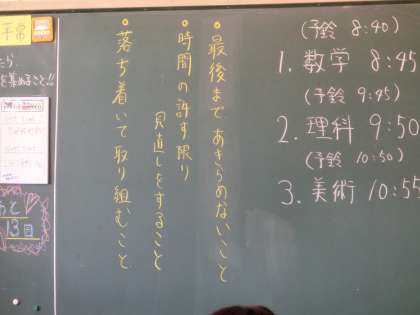 (予鈴 8:40)
1. 数学 8:45
(予鈴 9:45)
2. 理科 9:50
(予鈴 10:50)
3. 美術 10:55
• 最後まであきらめないこと
• 時間の許す限り
見直しをすること
• 落ち着いて取り組むこと
平常
を集めること!!
あと
13日